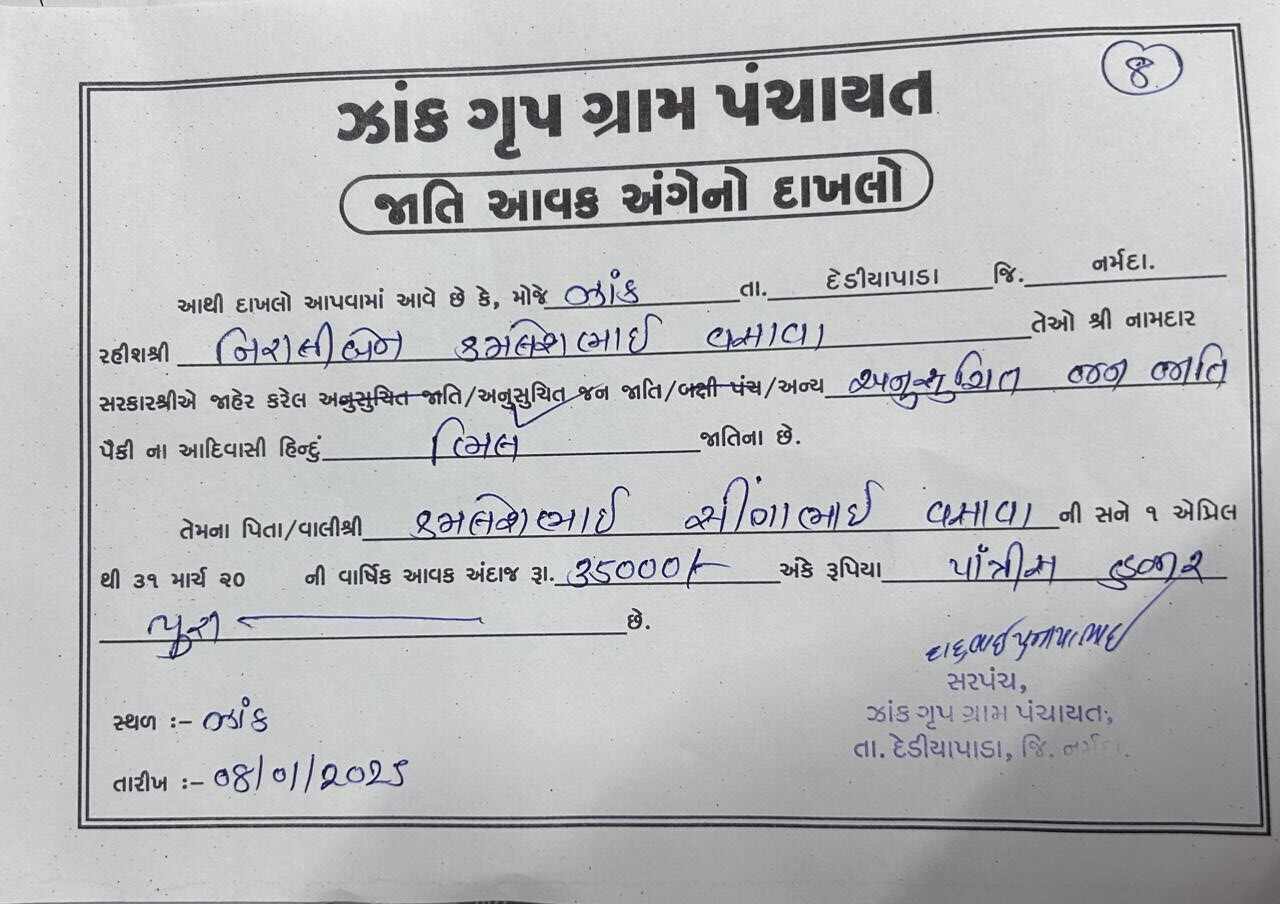 ૪
ઝાંક ગૃપ ગ્રામ પંચાયત
જાતિ આવક અંગેનો દાખલો
આથી દાખલો આપવામાં આવે છે કે, મોજે ઝાંક તા. દેડીયાપાડા જિ. નર્મદા.
રહીશશ્રી નિરાલીબેન કમલેશભાઈ વસાવા તેઓ શ્રી નામદાર
સરકારશ્રીએ જાહેર કરેલ અનુસુચિત જાતિ/અનુસુચિત જન જાતિ/બક્ષી પંચ/અન્ય અનુસુચિત જન જાતિ
પૈકી ના આદિવાસી હિન્દું ભિલ જાતિના છે.
તેમના પિતા/વાલીશ્રી કમલેશભાઈ સીંગાભાઈ વસાવા ની સને ૧ એપ્રિલ
થી ૩૧ માર્ચ ૨૦ ની વાર્ષિક આવક અંદાજ રૂા. 35000/- અંકે રૂપિયા પાઁત્રીસ હજાર
પુરા છે.
સરપંચ,
સ્થળ :- ઝાંક
ઝાંક ગૃપ ગ્રામ પંચાયત,
તા. દેડીયાપાડા, જિ. નર્મદા.
તારીખ :- 08/01/2025